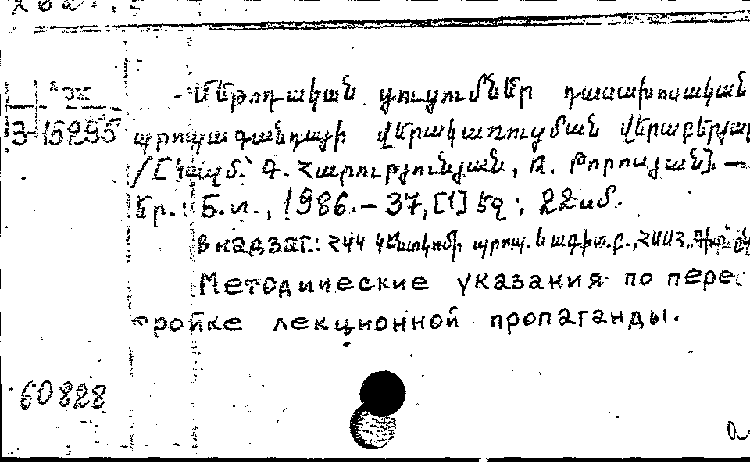 - Մեթոդական ցուցումներ դասախոսական
3-15295 պրոպագանդայի վերակառուցման վերաբերյալ
/[Կազմ.՝ Գ. Հարությունյան, Ա. Թորոսյան]. —
Եր.: Բ.ի., 1986.— 37,[1] էջ; 22սմ.
В надзаг.: ՀԿԿ կենտկոմի պրոպ. և
Методические указания по пере
ройке лекционной пропаганды.
60828